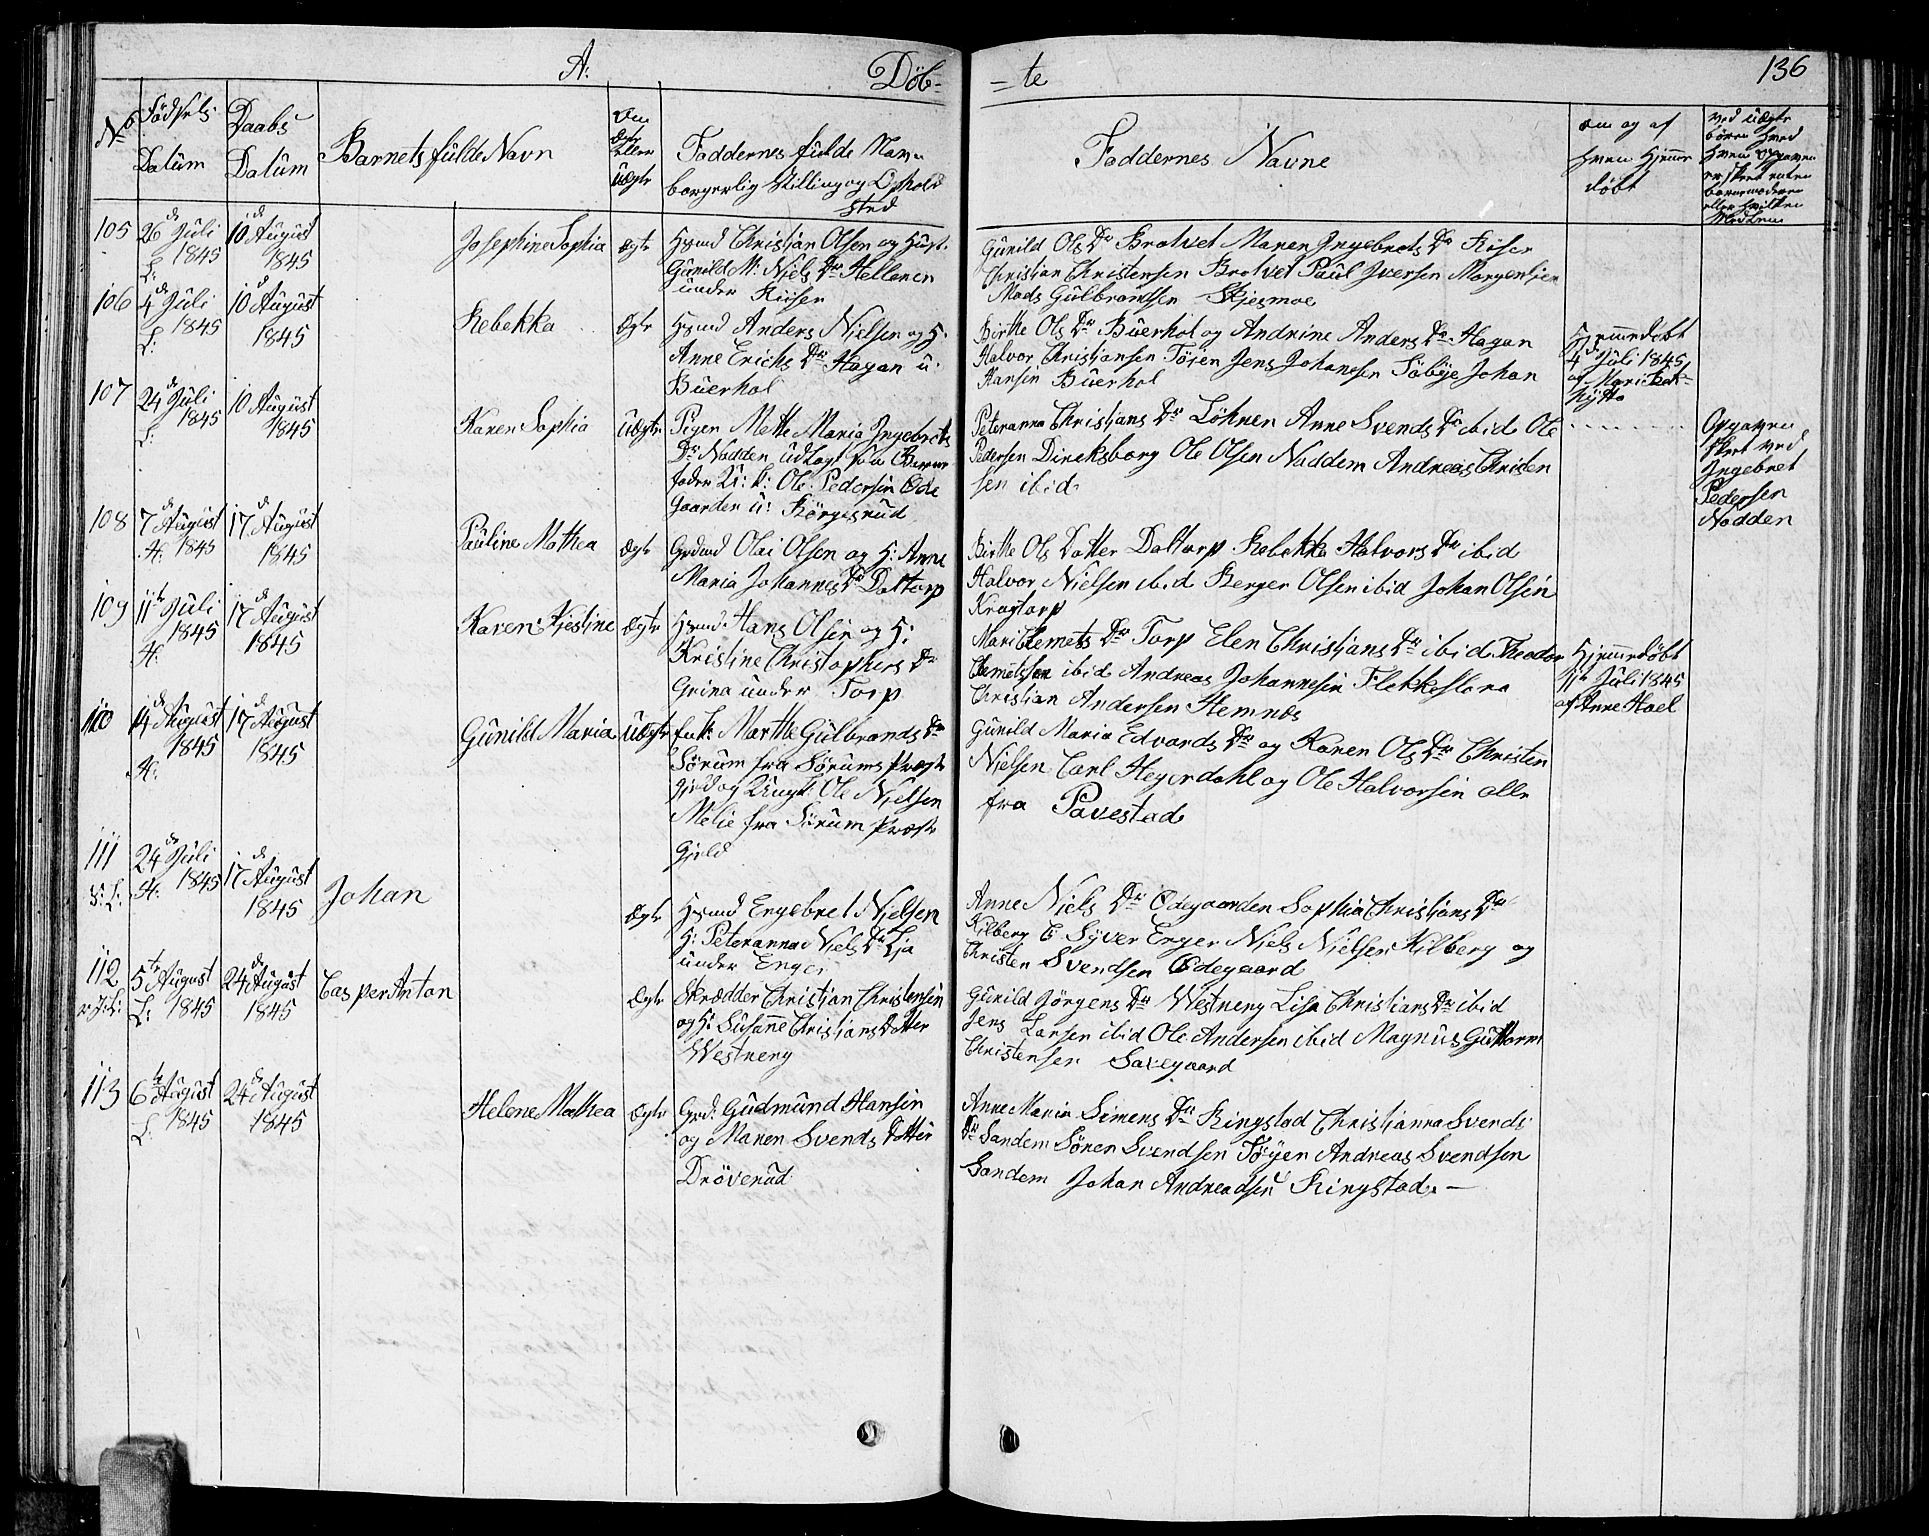 A: Döb- =te 136
No Födsels Datum Daabs Datum Barnets fulde Navn Om Ægte eller Uægte Faddernes fulde Navn borgerlig Stilling og Opholds sted Faddernes Navne om og af hvem hjemme döbt ved uægte
105 26de Juli 1845 L: 10de August 1845 Josephine Sophia Ægte Hsmd Christian Olsen og Hust.
Gunild M: Niels Dtr Hellenen
under Riiser
Gunild Ols Dtr Bratvet Maren Ingebrets Dtr Riiser
Christian Christensen Bratvet Paul Iversen Morgenlien
Mads Gulbrandsen Skjesmoe
106 4de Juli 1845 L: 10de August 1845 Rebekka Ægte Hsmd Anders Nielsen og H:
Anne Erichs Dtr Hagan u:
Buerhol
Birthe Ols Dtr Buerhol og Andrine Anders Dtr Hagan
Halvor Christiansen Töien Jens Johansen Söbye Johan
Hansen Buerhol
Hjemmedöbt
4de Juli 1845
af Mari
hytta
107 24de Juli 1845 L: 10 August 1845 Karen Sophia Uægte Pigen Mette Maria Ingebrets
Dtr Nadden udlagt som Barne
fader U: k: Ole Pedersen Öde
gaarden u: Börgesrud
Peteranna Christians Dtr Löhren Anne Svends Dtr ibid Ole
Pedersen Direksborg Ole Olsen Naddem Andreas Christen
sen ibid
Opgaven
skeet ved
Ingebret
Pedersen
Nadden
108 7de August 1845 H: 17de August 1845 Pauline Mathea Ægte Grdmd Olai Olsen og H: Anne
Maria Johannes Dtr Daltorp
Birthe Ols Datter Daltorp Rebekka Halvors Dtr ibid
Halvor Nielsen ibid Berger Olsen ibid Johan Olsen
Kragtorp
109 11te Juli 1845 H: 17de August 1845 Karen Kjestine Ægte Hsmd: Hans Olsen og H:
Kristine Christophers Dtr
Grina under Torp
Mari Clemets Dtr Torp Elen Christians Dtr ibid Theodor
Clemetsen ibid Andreas Johannesen Flekkeslora
Christian Andersen Hemnæs
Hjemmedöbt
11te Juli 1845
af Anne Hoel
110 14de August 1845 H: 17de August 1845 Gunild Maria Uægte Marthe Gulbrands Dtr
Sörum fra Sörums Præste
gjeld og Ungk: Ole Nielsen
Melie fra Sörum Præste
gjeld
Gunild Maria Edvards Dtr og Karen Ols Dtr Christen
Nielsen Carl Heyerdahl og Ole Halvorsen alle
fra Pavestad
111 24de Juli H: 1845 17de August 1845 Johan Ægte Hsmd Engebret Nielsen
H: Peteranna Niels Dtr Lia
under Enger
Anne Niels Dtr Ödegaarden Sophia Christians Dtr
Kilberg E: Syver Enger Niels Nielsen Kilberg og
Christen Svendsen Ödegaard
112 5te August L: 1845 24de August 1845 Casper Anton Ægte Skrædder Christian Christensen
og H: Susanne Christians Datter
Westreng
Gunild Jörgens Dtr Westreng Lisa Christians Dtr ibid
Jens Larsen ibid Ole Andersen ibid Magnus Guttorm
Christensen Savegaard
113 6te August L: 1845 24de August 1845 Helene Mathea Ægte Grd: Gudmund Hansen
og Maren Svends Datter
Drövenud
Anne Maria Simens Dtr Ringstad Christianna Svends
Dtr Sandem Sören Svendsen Töyen Andreas Svendsen
Sandem Johan Andreasen Ringstad. —